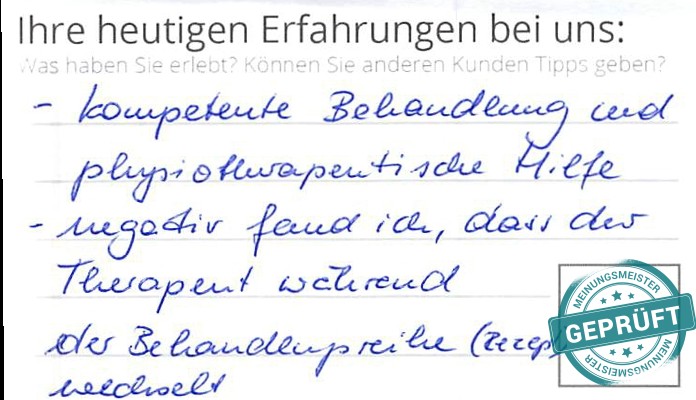 Ihre heutigen Erfahrungen bei uns:
Was haben Sie erlebt? Können Sie anderen Kunden Tipps geben?
- kompetente Behandlung und
physiotherapeutische Hilfe
- negativ fand ich, dass der
Therapent während
der Behandlungsreihe (Rezep
wechselt
MEINUNGSMEISTER
GEPRÜFT
MEINUNGSMEISTER